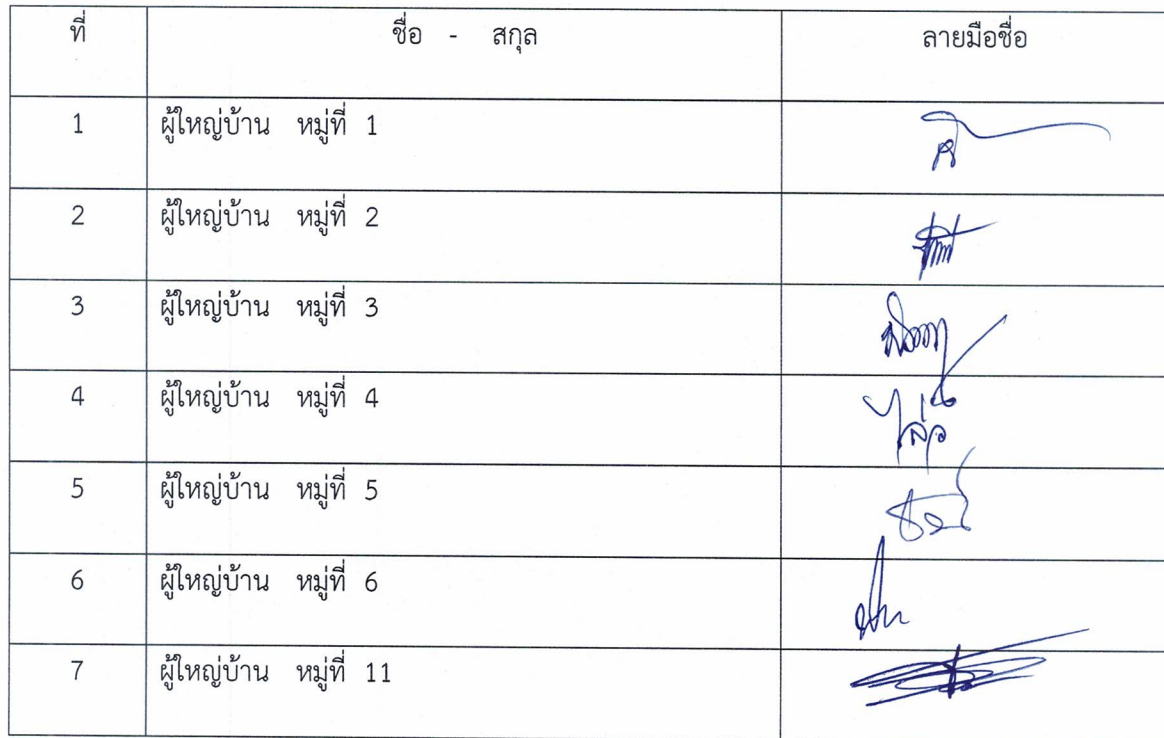 ที่ ชื่อ - สกุล ลายมือชื่อ
1 ผู้ใหญ่บ้าน หมู่ที่ 1
2 ผู้ใหญ่บ้าน หมู่ที่ 2
3 ผู้ใหญ่บ้าน หมู่ที่ 3
4 ผู้ใหญ่บ้าน หมู่ที่ 4
5 ผู้ใหญ่บ้าน หมู่ที่ 5
6 ผู้ใหญ่บ้าน หมู่ที่ 6
7 ผู้ใหญ่บ้าน หมู่ที่ 11